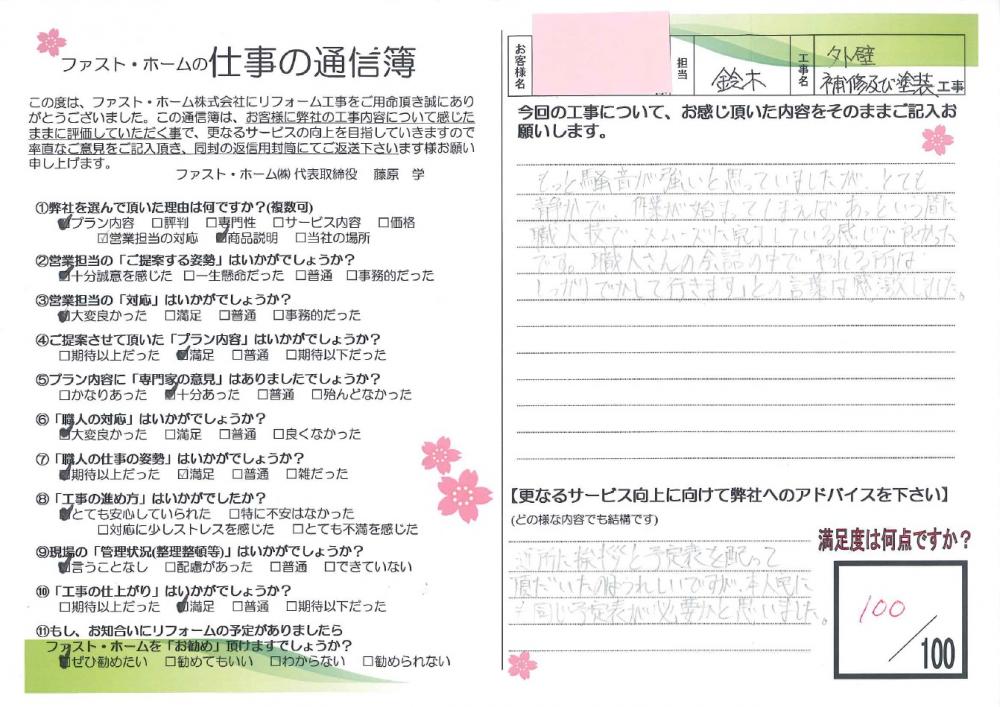 ファスト・ホームの仕事の通信簿
この度は、ファスト・ホーム株式会社にリフォーム工事をご用命頂き誠にあり
がとうございました。この通信簿は、お客様に弊社の工事内容について感じた
ままに評価していただく事で、更なるサービスの向上を目指していきますので
率直なご意見をご記入頂き、同封の返信用封筒にてご返送下さいます様お願い
申し上げます。
ファスト・ホーム㈱ 代表取締役 藤原 学
①弊社を選んで頂いた理由は何ですか?(複数可)
☑プラン内容 □評判 □専門性 □サービス内容 □価格
☑営業担当の対応 ☑商品説明 □当社の場所
②営業担当の「ご提案する姿勢」はいかがでしょうか?
☑十分誠意を感じた □一生懸命だった □普通 □事務的だった
③営業担当の「対応」はいかがでしょうか?
☑大変良かった □満足 □普通 □事務的だった
④ご提案させて頂いた「プラン内容」はいかがでしょうか?
□期待以上だった ☑満足 □普通 □期待以下だった
⑤プラン内容に「専門家の意見」はありましたでしょうか?
□かなりあった ☑十分あった □普通 □殆んどなかった
⑥「職人の対応」はいかがでしょうか?
☑大変良かった □満足 □普通 □良くなかった
⑦「職人の仕事の姿勢」はいかがでしょうか?
☑期待以上だった ☑満足 □普通 □雑だった
⑧「工事の進め方」はいかがでしたか?
☑とても安心していられた □特に不安はなかった
□対応に少しストレスを感じた □とても不満を感じた
⑨現場の「管理状況(整理整頓等)」はいかがでしょうか?
☑言うことなし □配慮があった □普通 □できていない
⑩「工事の仕上がり」はいかがでしょうか?
□期待以上だった ☑満足 □普通 □期待以下だった
⑪もし、お知合いにリフォームの予定がありましたら
ファスト・ホームを「お勧め」頂けますでしょうか?
☑ぜひ勧めたい □勧めてもいい □わからない □勧められない
お客様名
担当 鈴木
工事名 外壁
補修及び塗装工事
今回の工事について、お感じ頂いた内容をそのままご記入お
願いします。
もっと騒音が強いと思っていましたが、とても
静かで、作業が始まってしまえばあっという間に
職人技で、スムーズに完了している感じで良かった
です。職人さんの会話の中で「やれる所は
しっかりでかして行きます」との言葉は感激しました。
【更なるサービス向上に向けて弊社へのアドバイスを下さい】
(どの様な内容でも結構です)
近所に挨拶と予定表を配って
頂だいたのはうれしいですが、本人民に
も同じ予定表が必要かと思いました。
満足度は何点ですか?
100
/100